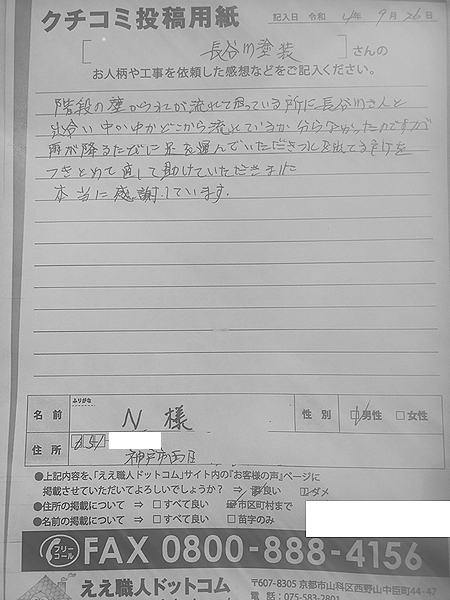 クチコミ投稿用紙
記入日 令和 4年 9月 26日
[ 長谷川塗装 ] さんの
お人柄や工事を依頼した感想などをご記入ください。
階段の壁から水が流れて困っている所に長谷川さんと
出会い中々中かどこから流れているか分らなかったのですが
雨が降るたびに足を運んでいただき水が出てる色々を
つきとめて直して助けていただきました
本当に感謝しています。
ふりがな
名前 N 様 性別 ☑男性 □女性
住所 651-
神戸市西区
●上記内容を、「ええ職人ドットコム」サイト内の『お客様の声』ページに
掲載させていただいてよろしいでしょうか? ⇒ ☑良い □ダメ
●住所の掲載について ⇒ □すべて良い ☑市区町村まで
●名前の掲載について ⇒ □すべて良い □苗字のみ
フリーコール FAX 0800-888-4156
ええ職人ドットコム 〒607-8305 京都市山科区西野山中臣町44-47
電話:075-583-2801